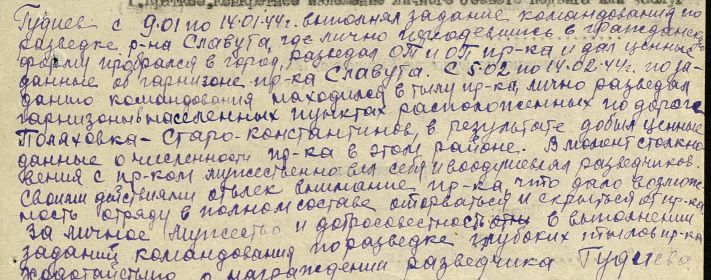 1. Краткое, конкретное изложение личного боевого подвига или заслуг
Гудиев с 9.01 по 14.01.44г. выполнял задание командования по
разведке р-на Славута, где лично переодевшись в гражданск.
форму пробрался в город, разведал ОТ и ОП пр-ка и дал ценные
данные о гарнизоне пр-ка Славута. С 5.02 по 14.02.44г. по за-
данию командования находился в тылу пр-ка, лично разведал
гарнизоны в населенных пунктах расположенных по дороге
Поляховка – Старо-константинов, в результате добыл ценные
данные о численности пр-ка в этом районе. В момент столкно-
вения с пр-ком мужественно вел себя и воодушевлял разведчиков.
Своими действиями отвлек внимание пр-ка, что дало возмож-
ность отряду в полном составе оторваться и скрыться от пр-ка.
За личное мужество и добросовестность в выполнении
заданий командования по разведке глубоких тылов пр-ка
ходатайствую о награждении разведчика Гудиева